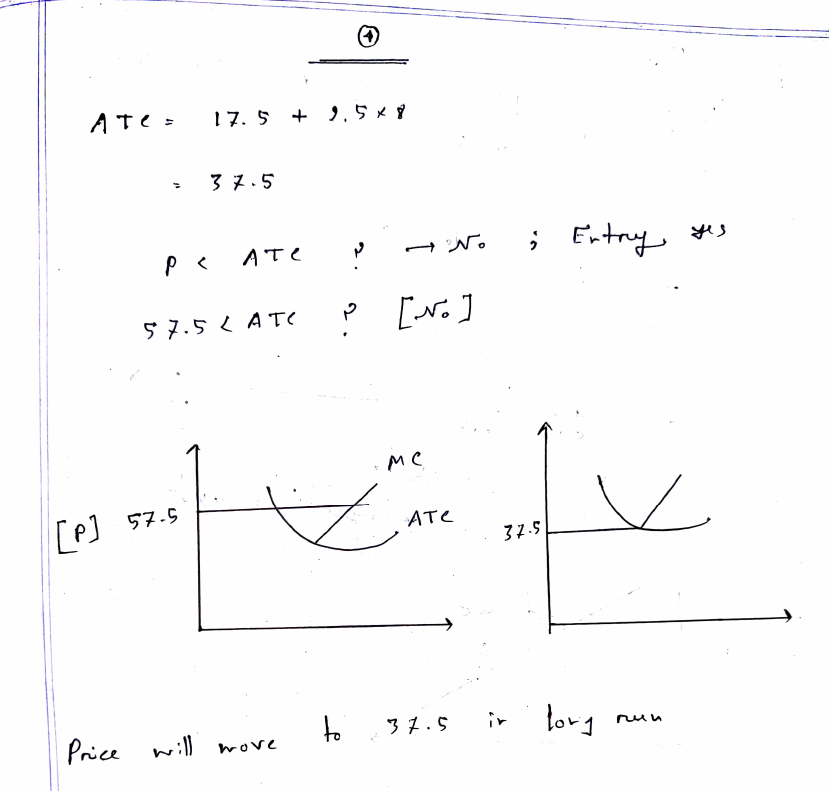 ④
ATC = 17.5 + 2.5 × 8
= 37.5
P < ATC ? → No ; Entry, yes
57.5 < ATC ? [No]
MC
[P] 57.5
ATC
37.5
Price will move to 37.5 in long run